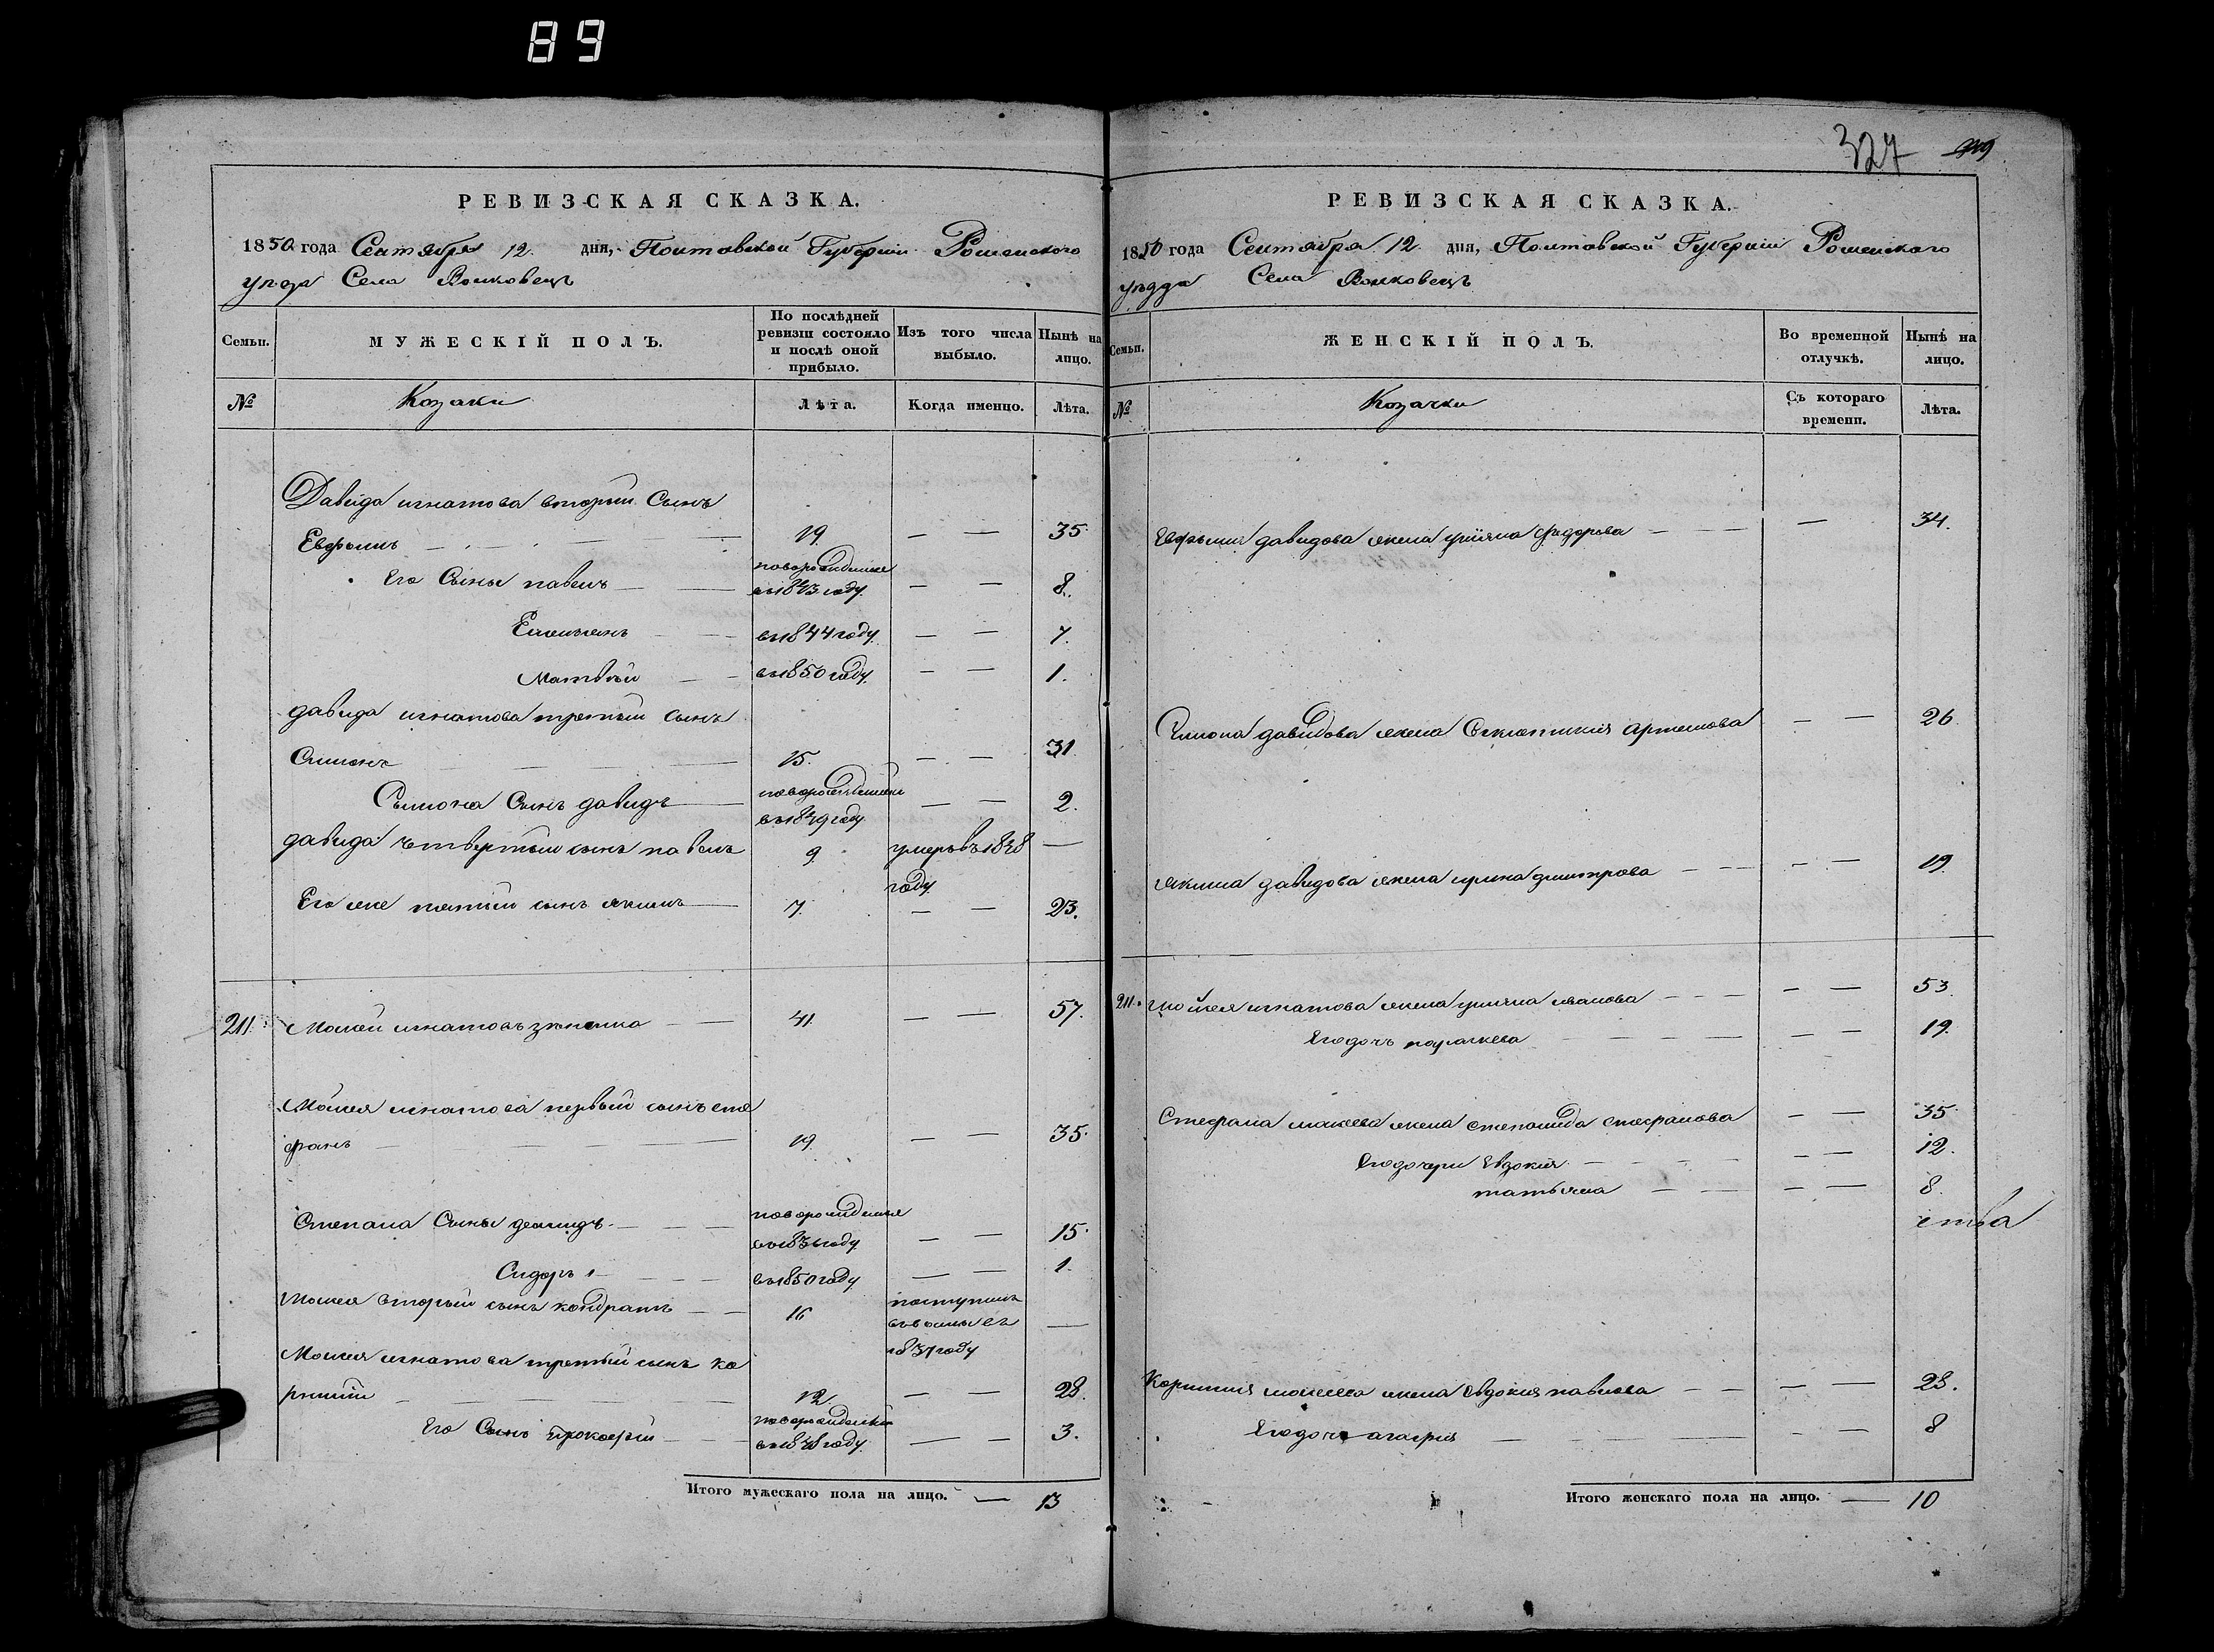 89
327
РЕВИЗСКАЯ СКАЗКА.
1850 года Сентября 12. дня, Полтавской Губерніи Роменского
уезда Села Волковецъ
Семьи.
МУЖЕСКІЙ ПОЛЪ.
По послѣдней ревизіи состояло и послѣ оной прибыло.
Изъ того числа выбыло.
Нынѣ на лицо.
№
Козаки
Лѣта.
Когда именно.
Лѣта.
Давида игнатова вторый Сынъ
Евфимъ — 19 — — 35
Его Сыны павелъ — новорожденые въ 1843 году — — 8.
Емельянъ — въ 1844 году — — 7.
Матвѣй — въ 1850 году — — 1.
давида игнатова третий сынъ
Симонъ — 15. — — 31
Сымона Сынъ давидъ — новорожденный въ 1849 году — — 2.
давида четвертый сынъ павелъ 9 умеръ въ 1838 году —
Его же пятый сынъ якимъ — 7. — — 23.
211. Мойсей игнатовъ — 41 — — 57.
Мойсея игнатова первый сынъ сте
фанъ — 19 — — 35.
Степана Сыны демидъ — новорожденые въ 1836 году — — 15.
Сидоръ — въ 1850 году — — 1.
Мойсея вторый сынъ кондратъ — 16 поступилъ въ 1837 году —
Мойсея игнатова третий сынъ ко
рнилий — 12 — — 28.
Его Сынъ прокофий — новорожденный въ 1848 году — — 3.
Итого мужескаго пола на лицо. — 13
РЕВИЗСКАЯ СКАЗКА.
1850 года Сентября 12. дня, Полтавской Губерніи Роменского
уезда Села Волковецъ
Семьи.
ЖЕНСКІЙ ПОЛЪ.
Во временной отлучкѣ.
Нынѣ на лицо.
№
Козачки
Съ котораго времени.
Лѣта.
Евфимия давидова жена улияна федорова — — 34.
Симона давидова жена артемова — — 26
якима давидова жена ирина дмитрова — — 19
211. мойсея игнатова жена улияна иванова — — 53
Его дочь параскева — — 19.
Стефана мойсеева жена степанида стефанова — — 35
Его дочери Евдокия — — 12.
татьяна — — 8.
ства
Корнилия мойсеева жена Евдокия павлова — — 28.
Его дочь агафия — — 8
Итого женскаго пола на лицо. — 10